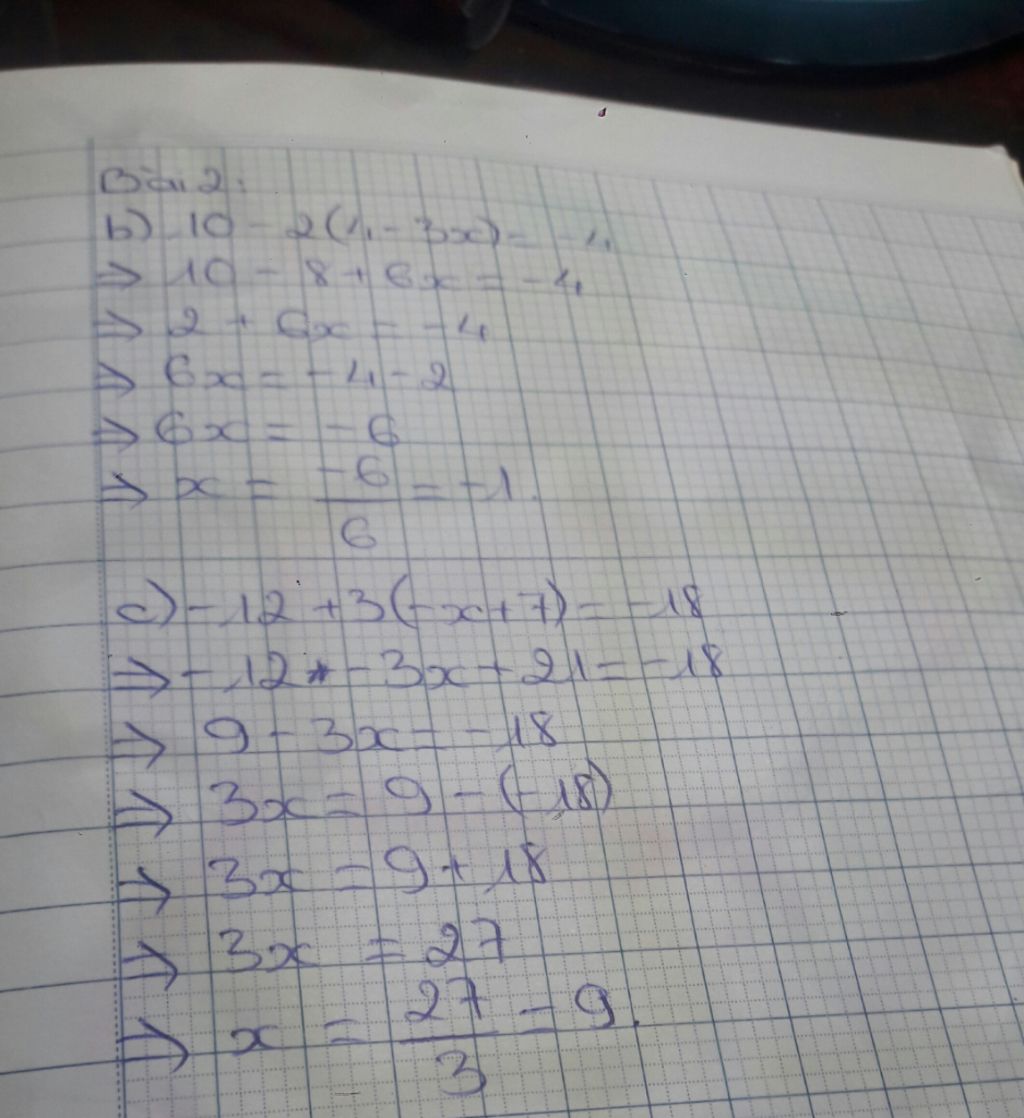 Bài 2:
b) 10 - 2(4 - 3x) = -4
⇒ 10 - 8 + 6x = -4
⇒ 2 + 6x = -4
⇒ 6x = -4 - 2
⇒ 6x = -6
⇒ x = -6/6 = -1.
c) -12 + 3(-x + 7) = -18
⇒ -12 - 3x + 21 = -18
⇒ 9 - 3x = -18
⇒ 3x = 9 - (-18)
⇒ 3x = 9 + 18
⇒ 3x = 27
⇒ x = 27/3 = 9.